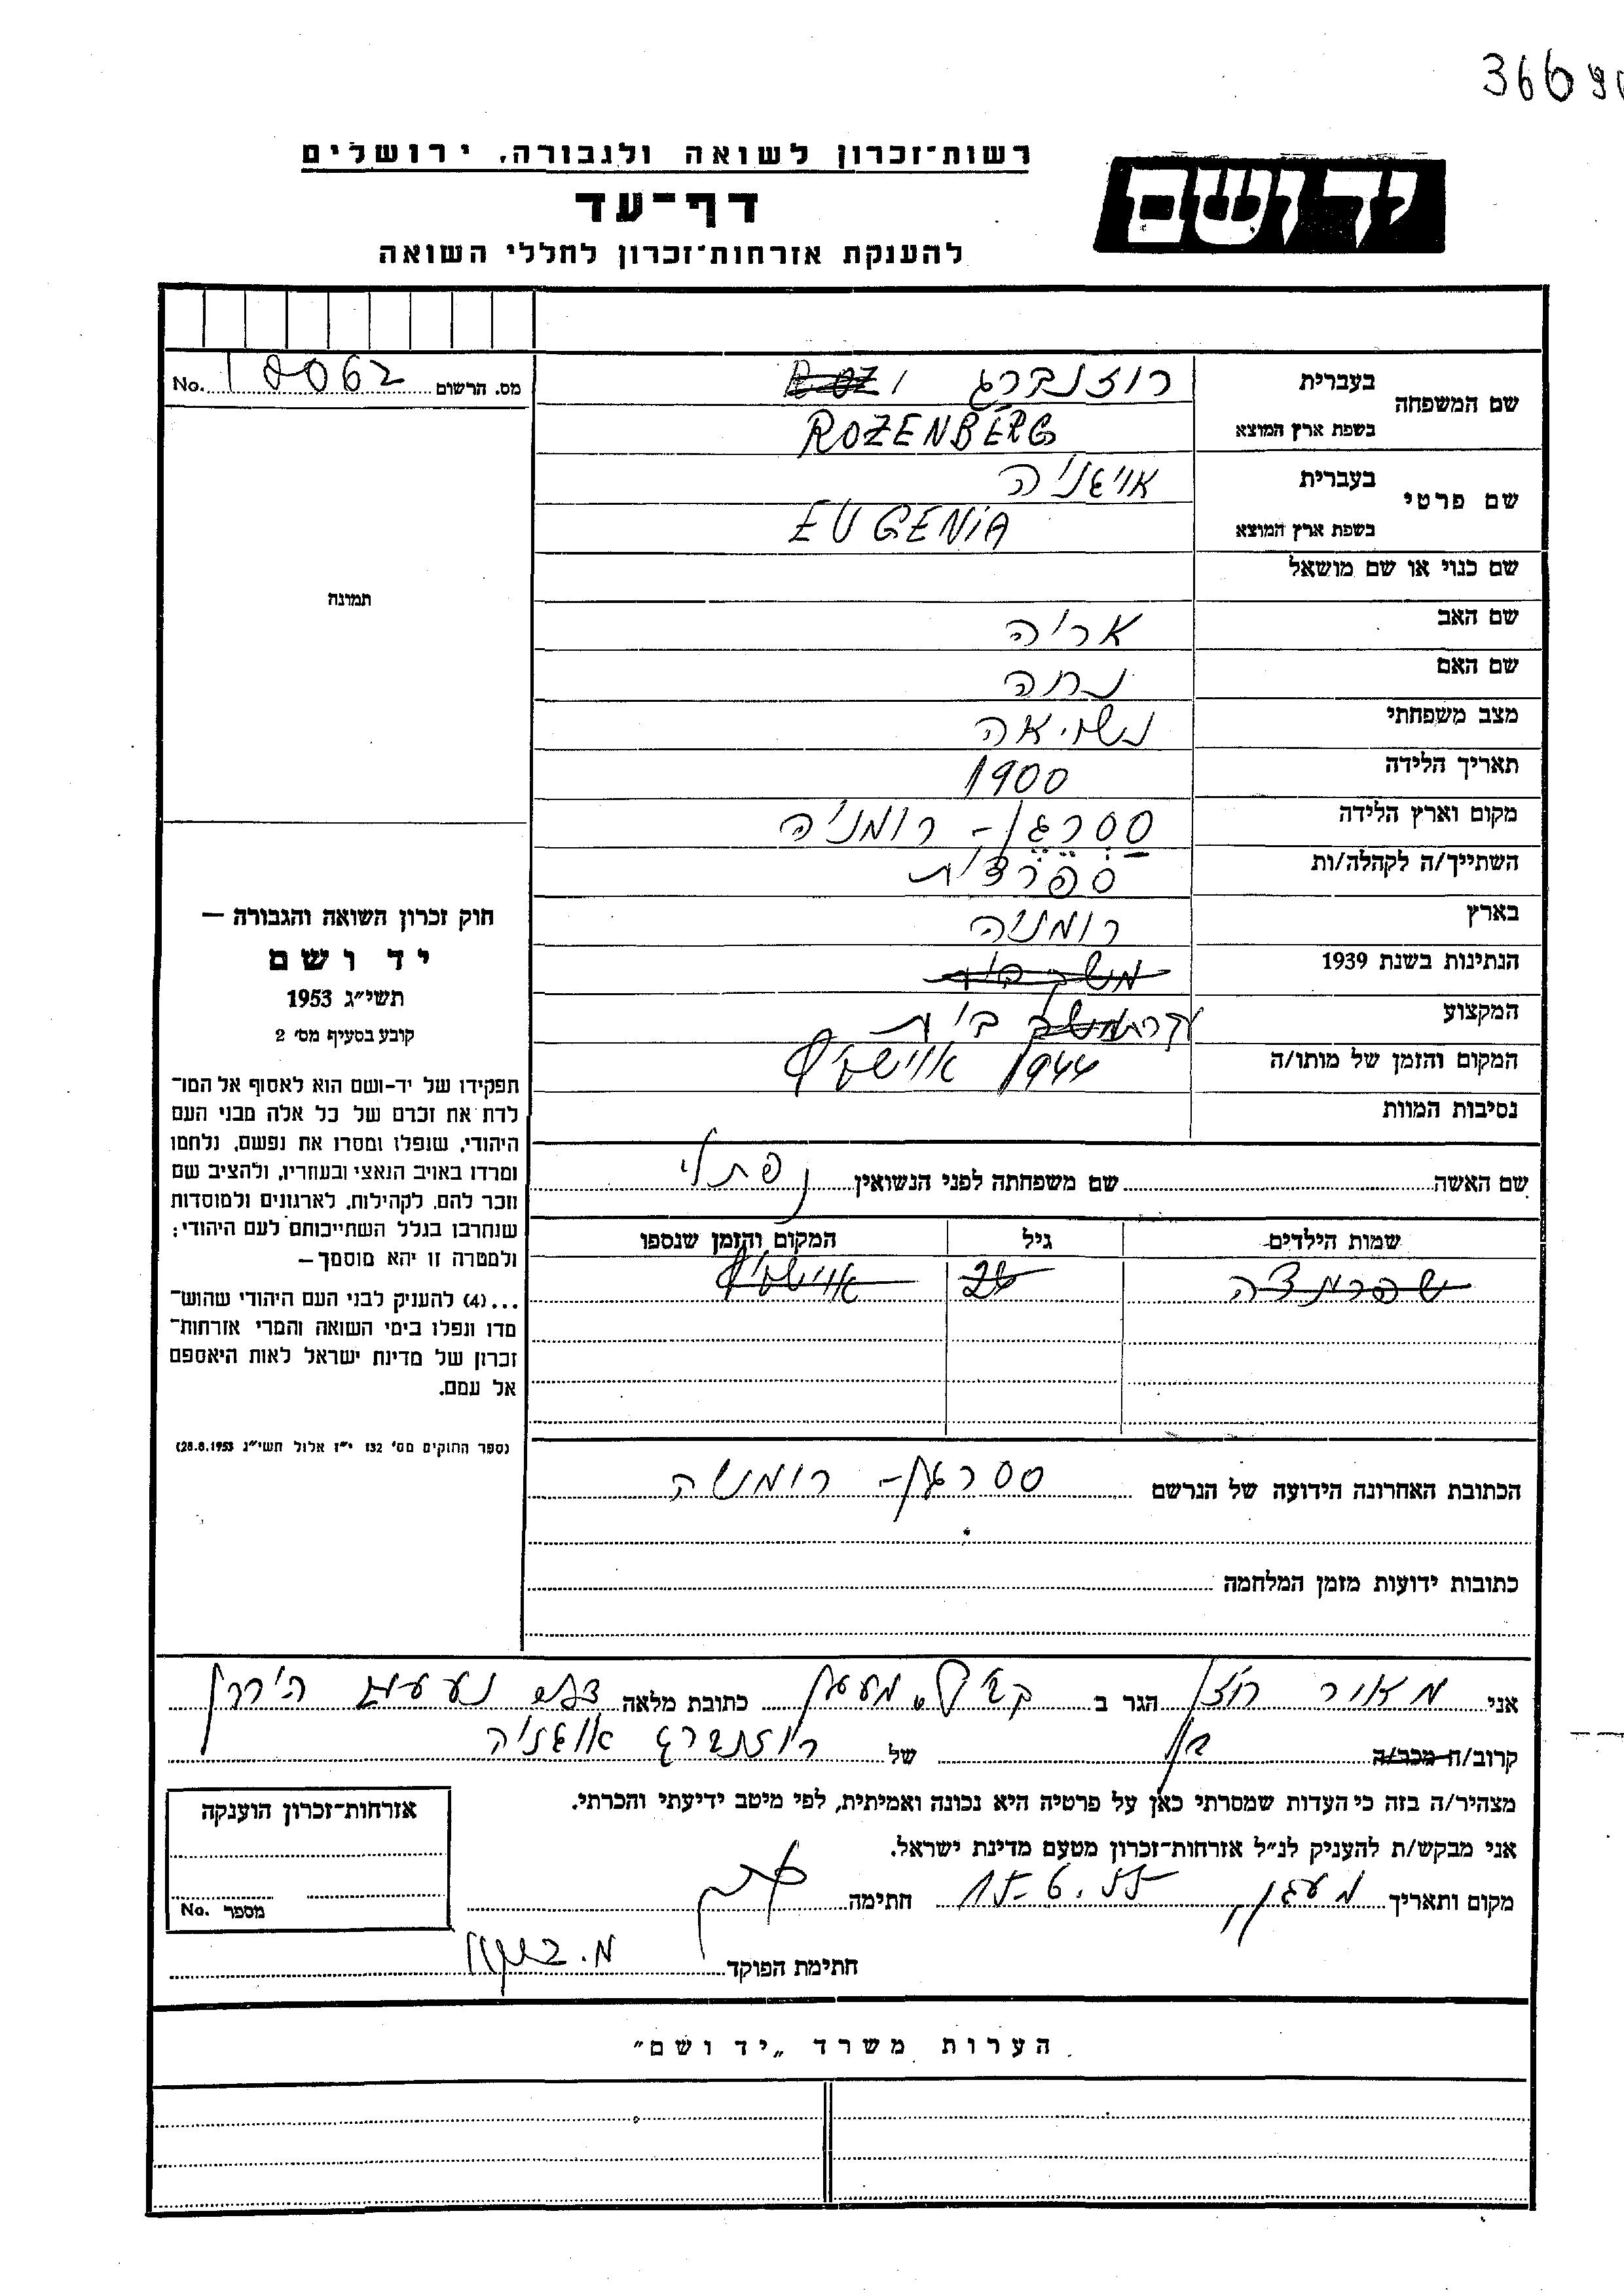 3669
רשות־זכרון לשואה ולגבורה, ירושלים
יד ושם
דף־עד
להענקת אזרחות־זכרון לחללי השואה
שם המשפחה
בעברית
רוזנברג
בשפת ארץ המוצא
ROZENBERG
שם פרטי
בעברית
אויגניה
בשפת ארץ המוצא
EUGENIA
שם כנוי או שם מושאל
שם האב
אריה
שם האם
נחה
מצב משפחתי
נשואה
תאריך הלידה
1900
מקום וארץ הלידה
ססרגן - רומניה
השתייך/ה לקהלה/ות
ספרדית
בארץ
רומניה
הנתינות בשנת 1939
המקצוע
עקרת בית
המקום והזמן של מותו/ה
1944 אוישויץ
נסיבות המוות
שם האשה
שם משפחתה לפני הנשואין
נפתלי
שמות הילדים
גיל
המקום והזמן שנספו
אוישויץ
הכתובת האחרונה הידועה של הנרשם
ססרגן - רומניה
כתובות ידועות מזמן המלחמה
No. 18062 מס. הרשום
תמונה
חוק זכרון השואה והגבורה —
יד ושם
תשי״ג 1953
קובע בסעיף מס׳ 2
תפקידו של יד-ושם הוא לאסוף אל המו־
לדת את זכרם של כל אלה מבני העם
היהודי, שנפלו ומסרו את נפשם, נלחמו
ומרדו באויב הנאצי ובעוזריו, ולהציב שם
וזכר להם, לקהילות, לארגונים ולמוסדות
שנחרבו בגלל השתייכותם לעם היהודי;
ולמטרה זו יהא מוסמך—
...(4) להעניק לבני העם היהודי שהוש־
מדו ונפלו בימי השואה והמרי אזרחות־
זכרון של מדינת ישראל לאות היאספם
אל עמם.
(ספר החוקים מס׳ 132 י״ז אלול תשי״ג 28.8.1953)
אני מאיר הגר ב כתובת מלאה
קרוב/ה מכר/ה בן של רוזנברג אוגניה
מצהיר/ה בזה כי העדות שמסרתי כאן על פרטיה היא נכונה ואמיתית, לפי מיטב ידיעתי והכרתי.
אני מבקש/ת להעניק לנ״ל אזרחות־זכרון מטעם מדינת ישראל.
מקום ותאריך מעגן 15.6.55 חתימה
חתימת הפוקד
אזרחות־זכרון הוענקה
No. מספר
הערות משרד „יד ושם"